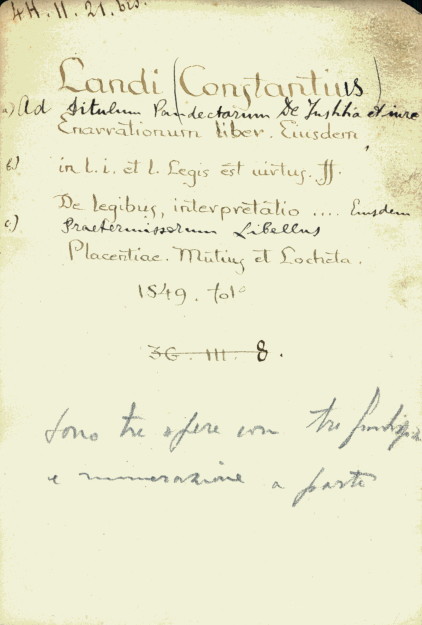 4H.11.21.bis.
Landi (Constantius)
a) Ad Titulum Pandectarum De Justitia et iure
Enarrationum liber. Eiusdem
b) in l. i. et l. Legis est virtus. ff.
De legibus, interpretatio .... Eiusdem
c) Praetermissorum Libellus
Placentiae. Mutius et Locheta.
1549. fol°
36. III. 8.
Sono tre opere con tre frontispizi
e numerazione a parte